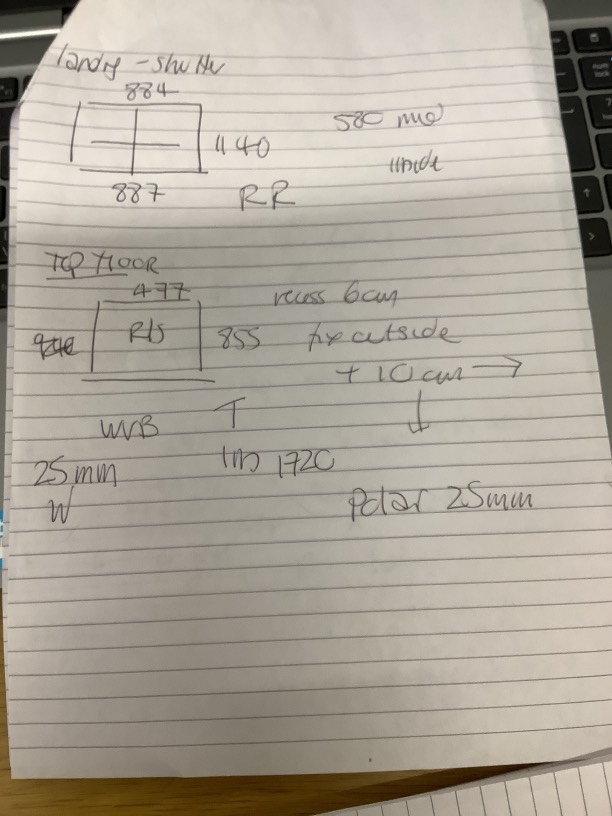 landry - shutter
884
1140
580 mid
inside
887
RR
TOP FLOOR
477
recess 6cm
R/S
855
fix outside
+ 10 cm →
WVB
T
25mm
1720
W
Polar 25mm